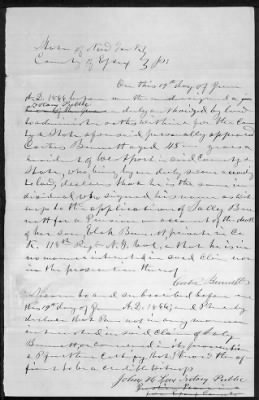 State of New York
County of Essex } ss.
On this 19th day of June
A.D. 1886 before me the undersigned a
Notary Public
duly authorized by law
to administer oaths within for the County
& State aforesaid personally appeared
Carlos Bennett aged 48 years a
resident of Westport in said County &
State, who, being by me duly sworn accord
to law, declares that he is the same in
dividual who signed his name
to the application of Sally Ben
nett for a Pension on account of the death
of her son, Elah Ben, a private in Co
K. 118th Reg. N.Y. Vol, that he is in
no manner interested in said claim nor
in the prosecution thereof
Carlos Bennett
Sworn to and subscribed before me
this 19th day of June A.D. 1886, and I hereby
declare that I am not in any
interested in said claim of Sally
Bennett, or concerned in its prosecution
& I further certify that I know the af
fiant to be a credible person
John H Low Notary Public